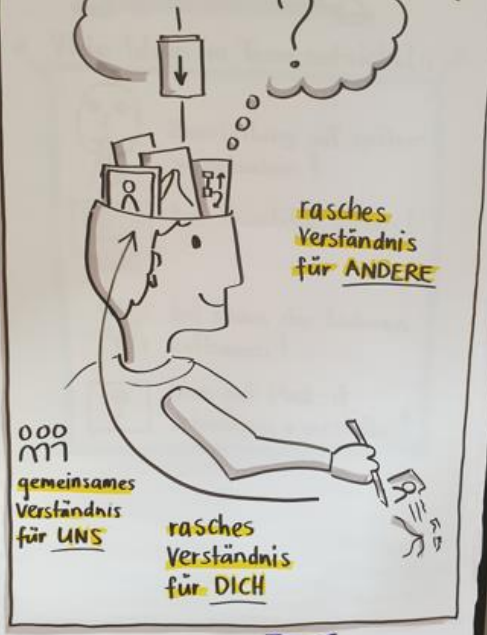 ?
rasches
Verständnis
für ANDERE
gemeinsames
Verständnis
für UNS
rasches
Verständnis
für DICH